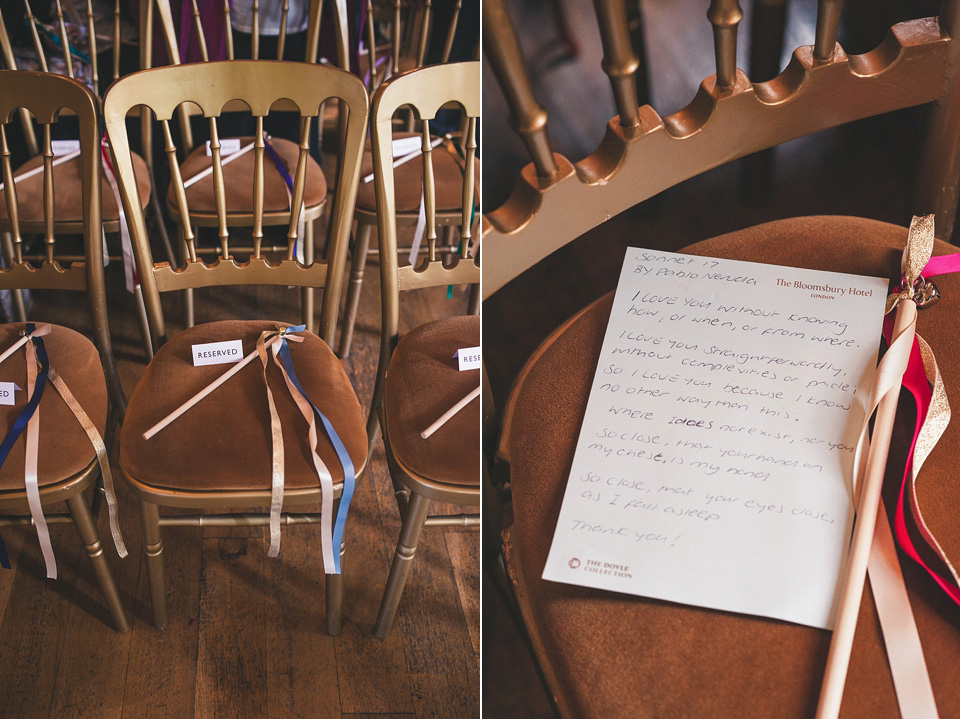 RESERVED
RESERVED
RESERVED
ED
RESERVED
RES
Sonnet 17
BY Pablo Neruda
The Bloomsbury Hotel
LONDON
I LOVE YOU without knowing
how, or when, or from where.
I LOVE YOU Straightforwardly,
without complexities or pride;
So I LOVE YOU because I know
no other way than this:
where I does not exist, nor you
So close, that your hand on
my chest, is my hand
So close, that your eyes close,
as I fall asleep
Thank you!
THE DOYLE
COLLECTION